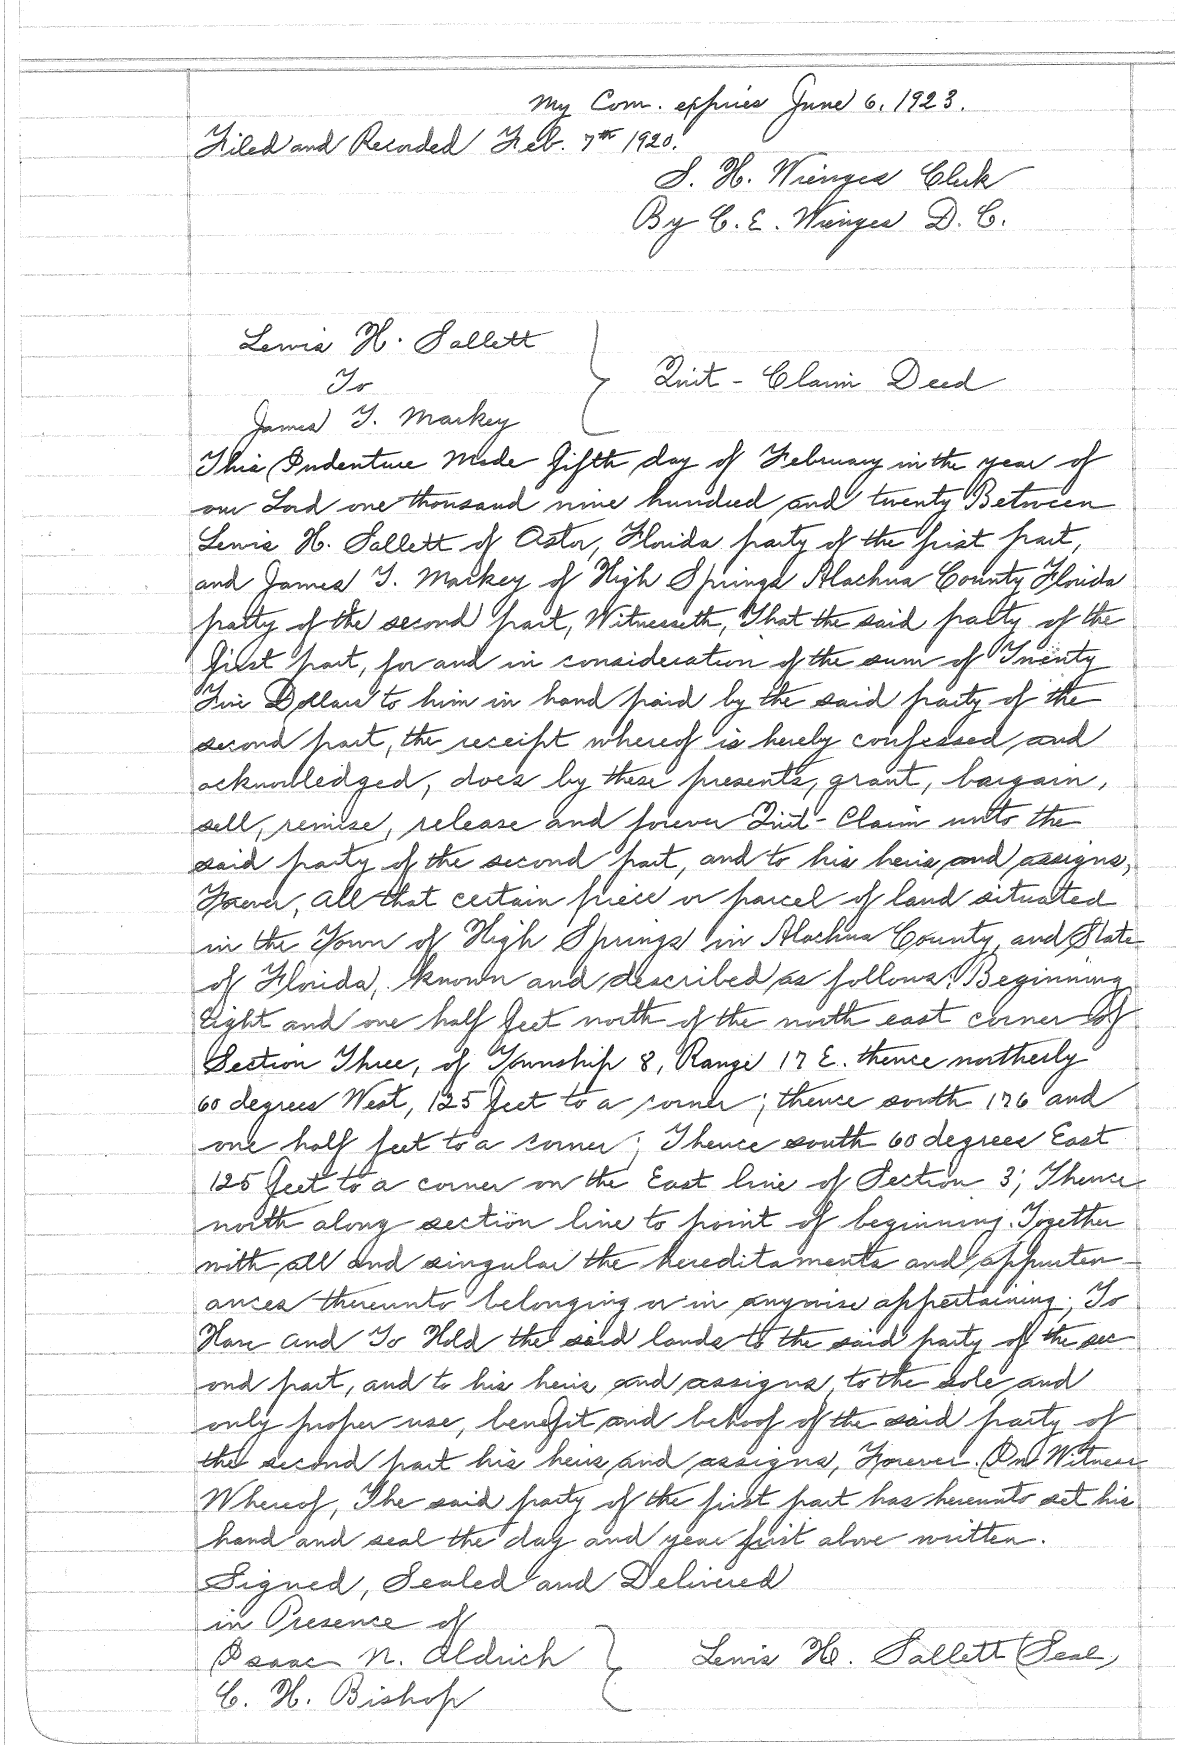 My Com. expires June 6, 1923.
Filed and Recorded Feb. 7th 1920.
S. H. Wienges Clerk
By C. E. Wienges D. C.
Lewis H. Sallett
To
James T. Markey
Quit - Claim Deed
This Indenture Made fifth day of February in the year of
our Lord one thousand nine hundred and twenty Between
Lewis H. Sallett of Astor, Florida party of the first part,
and James T. Markey of High Springs Alachua County Florida
party of the second part, Witnesseth, That the said party of the
first part, for and in consideration of the sum of Twenty
Five Dollars to him in hand paid by the said party of the
second part, the receipt whereof is hereby confessed and
acknowledged, does by these presents, grant, bargain,
sell, remise, release and forever Quit-Claim unto the
said party of the second part, and to his heirs and assigns,
Forever, all that certain piece or parcel of land situated
in the Town of High Springs in Alachua County, and State
of Florida, known and described as follows: Beginning
Eight and one half feet north of the north east corner of
Section Three, of Township 8, Range 17 E. thence northerly
60 degrees West, 125 feet to a corner; thence south 176 and
one half feet to a corner; Thence south 60 degrees East
125 feet to a corner on the East line of Section 3; Thence
north along section line to point of beginning. Together
with all and singular the hereditaments and appurten-
ances thereunto belonging or in anywise appertaining; To
Have and To Hold the said lands to the said party of the sec
ond part, and to his heirs and assigns, to the sole and
only proper use, benefit and behoof of the said party of
the second part his heirs and assigns, Forever. In Witness
Whereof, The said party of the first part has hereunto set his
hand and seal the day and year first above written.
Signed, Sealed and Delivered
in Presence of
Isaac N. Aldrich
C. H. Bishop
Lewis H. Sallett (Seal)